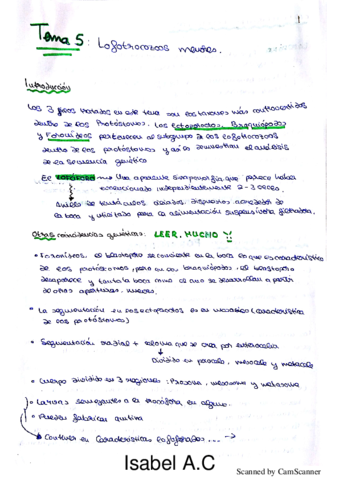 1
Tema 5: Lofotrocozoos menores.
Introducción
Los 3 filos tratados en este tema son los taxones más controvertidos
dentro de los Protóstomos. Los Ectoproctos, Braquiópodos
y Foronídeos pertenecen al subgrupo de los Lofotrocozoos
dentro de los protóstomos y así es demuestran el análisis
de la secuencia genética
El lofóforo una aparente sinapomorfía que parece haber
evolucionado independientemente 2-3 veces.
Anillo de tentáculos ciliados, dispuestos alrededor de
la boca y utilizado para la alimentación suspensívora filtradora.
Otras coincidencias genéticas: LEER MUCHO
Foronídeos: el blastoporo se convierte en la boca en que es característico
de los protóstomos, pero en los braquiópodos. El blastoporo
desaparece y tanto la boca como el ano se desarrollan a partir
de otras aperturas nuevas.
La segmentación en los ectoproctos es en mosaico (característica
de los protóstomos)
Segmentación radial + celoma que se crea por enterocelia
Dividido en protocele, mesocele y metacele
Cuerpo dividido en 3 regiones: Prosoma, mesosoma y metasoma
Larvas semejantes a la trocófora en algunos.
Pueden fabricar quitina
Continúa en Características lofoforados...
Isabel A.C
Scanned by CamScanner